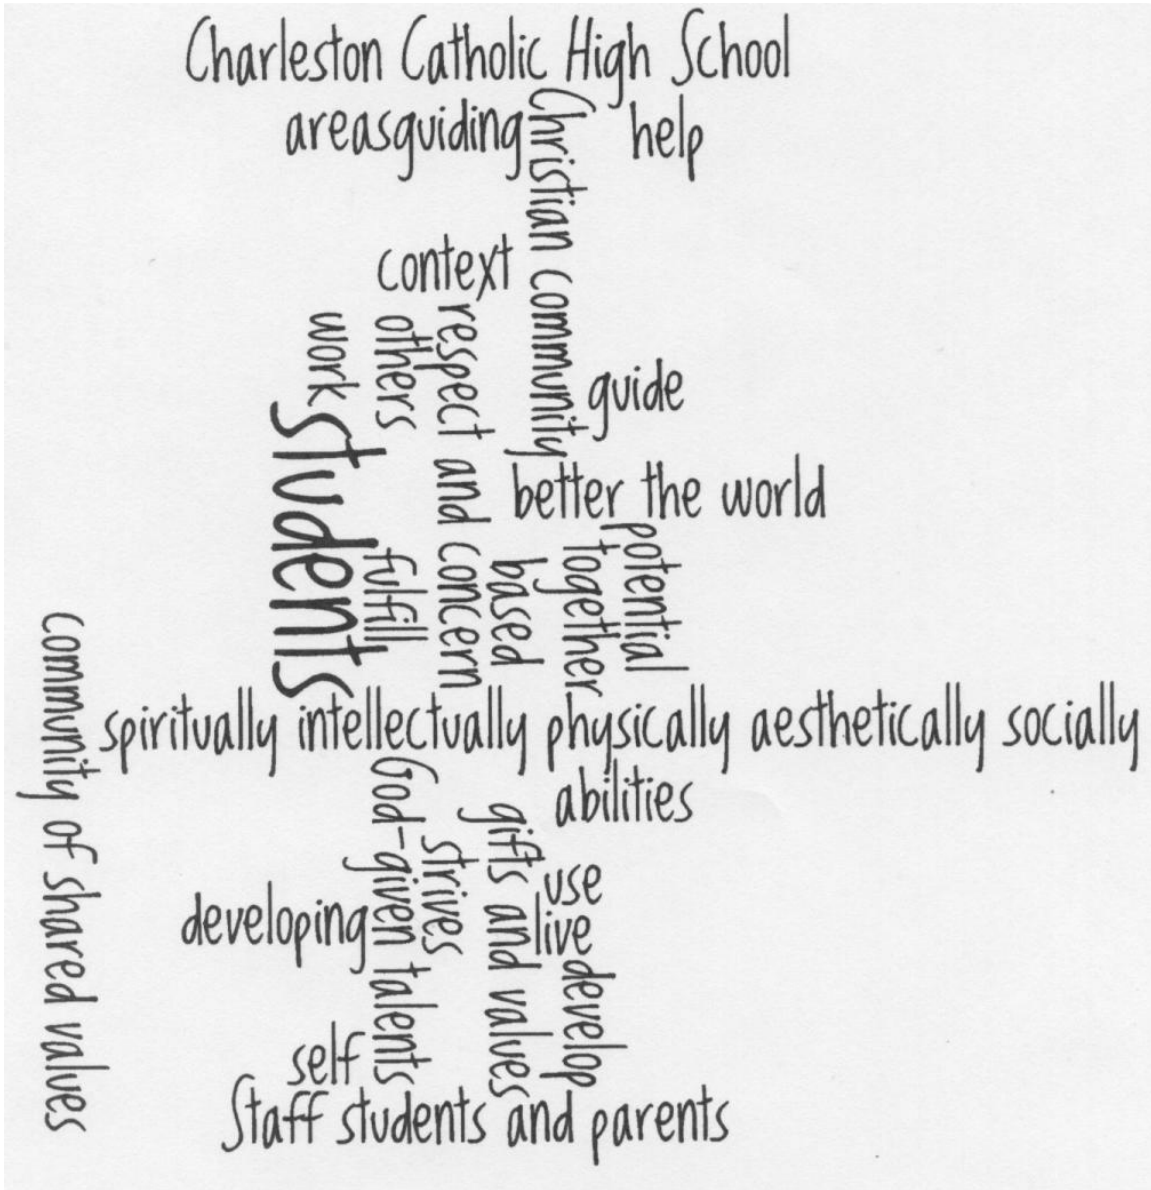 Charleston Catholic High School
areasguiding
help
Christian community
context
work
others
respect and concern
guide
students
better the world
fulfill
based
together
potential
community of shared values
spiritually intellectually physically aesthetically socially
God-given talents
abilities
gifts and values
strives
use
developing
live
develop
self
Staff students and parents